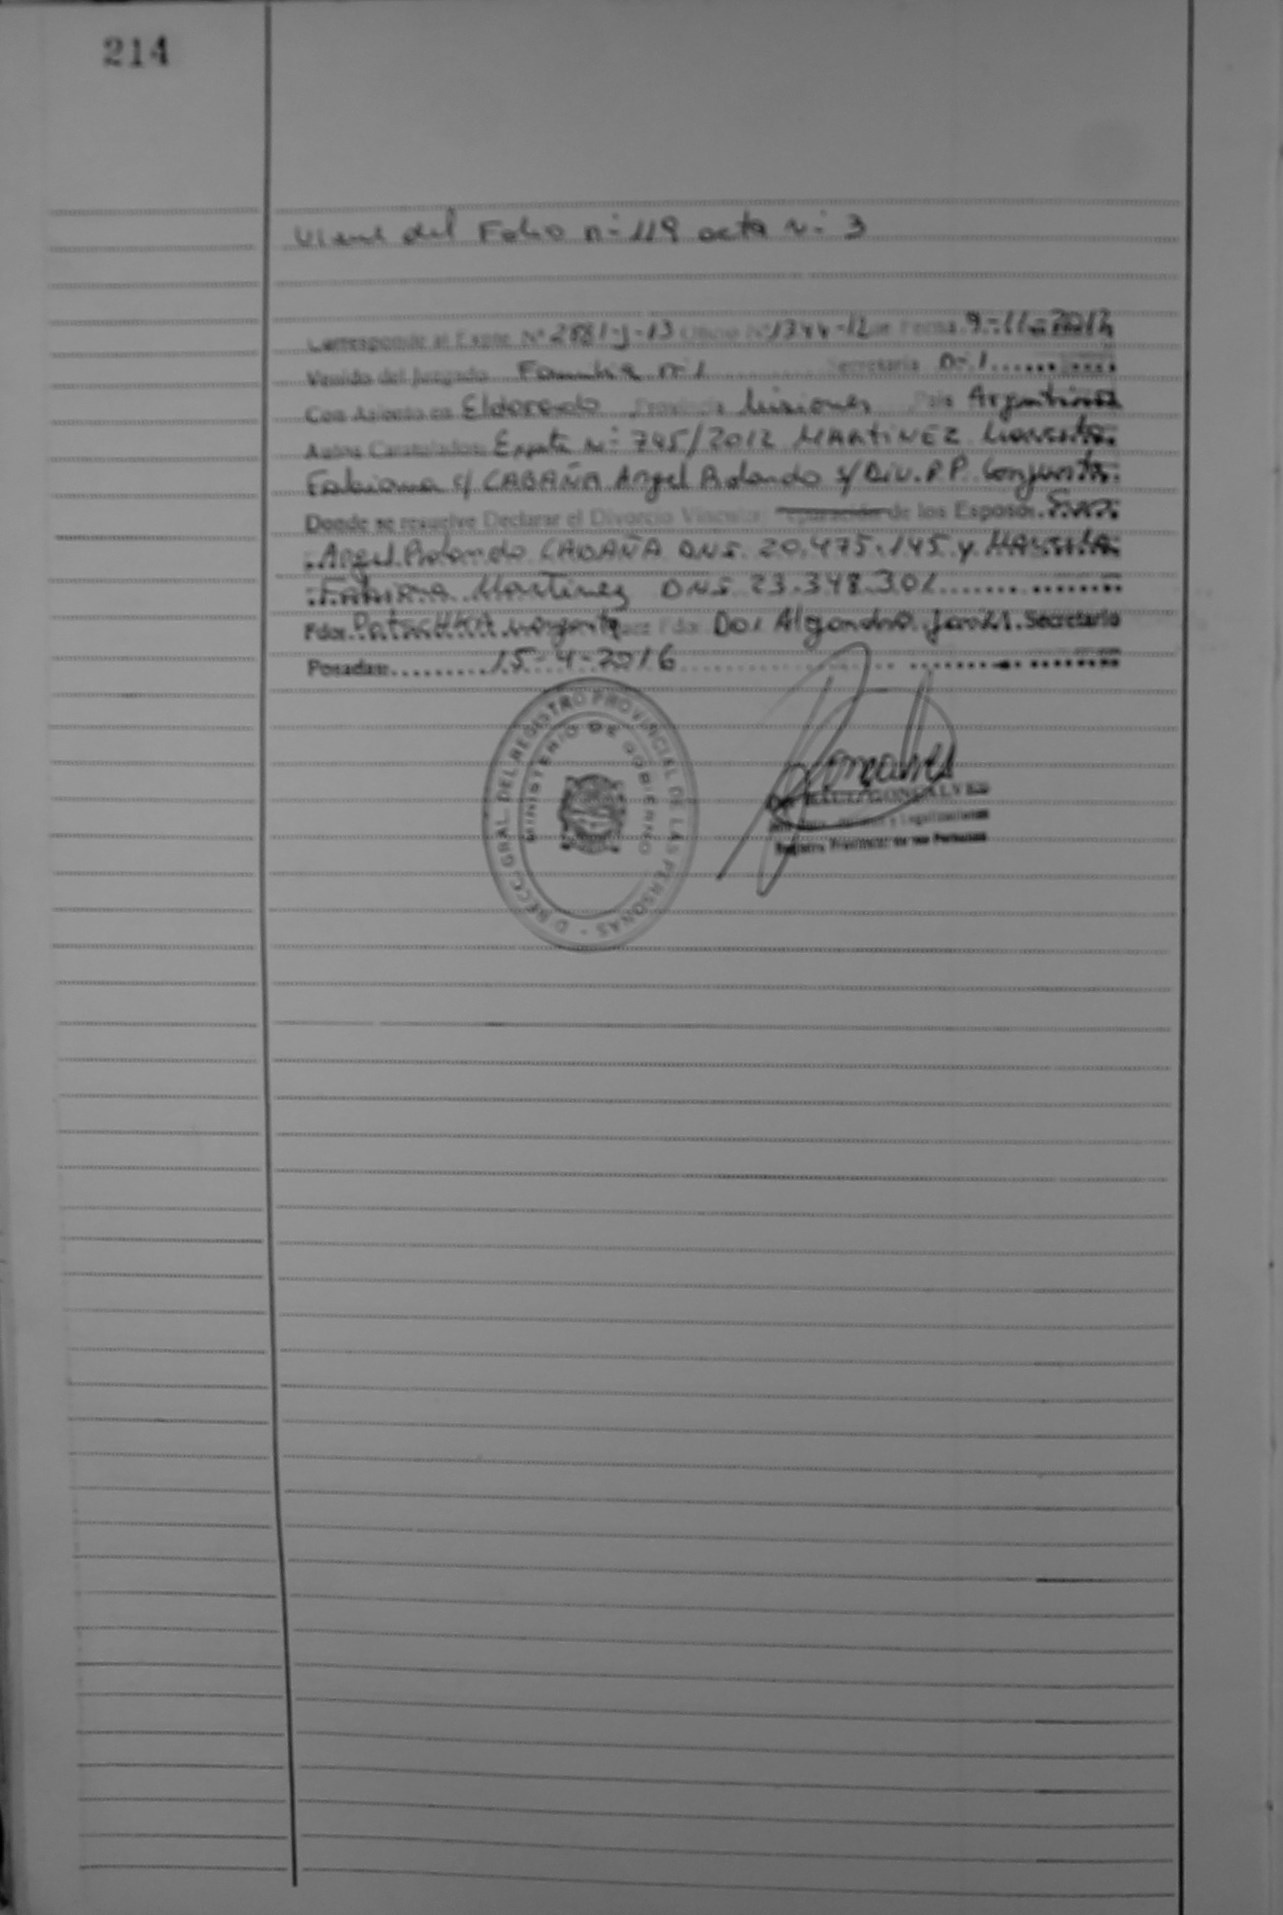 214
Viene del Folio n° 119 acta n° 3
Corresponde al Expte. N° 2881-J-13 Oficio N° 1344-12 de Fecha 9-11-2012
Venido del Juzgado Familia n° 1 Secretaria n° 1
Con Asiento en Eldorado Provincia Misiones Pais Argentina
Autos Caratulados Expte n° 745/2012 MARTINEZ
Fabiana s/ CABAÑA Angel Rolando s/ Div. P.P. Conjunta
Donde se resuelve Declarar el Divorcio Vincular Separación de los Esposos
Angel Rolando CABAÑA DNI. 20.475.145 y
Fabiana Martinez DNI 23.348.302
Fdo. Juez Fdo. Alejandro Secretario
Posadas: 15-4-2016
DIRECC. GRAL. DEL REGISTRO PROVINCIAL DE LAS PERSONAS -
MINISTERIO DE GOBIERNO
Goncalves
RAUL GONCALVES
y Legalizaciones
Registro Provincial de las Personas